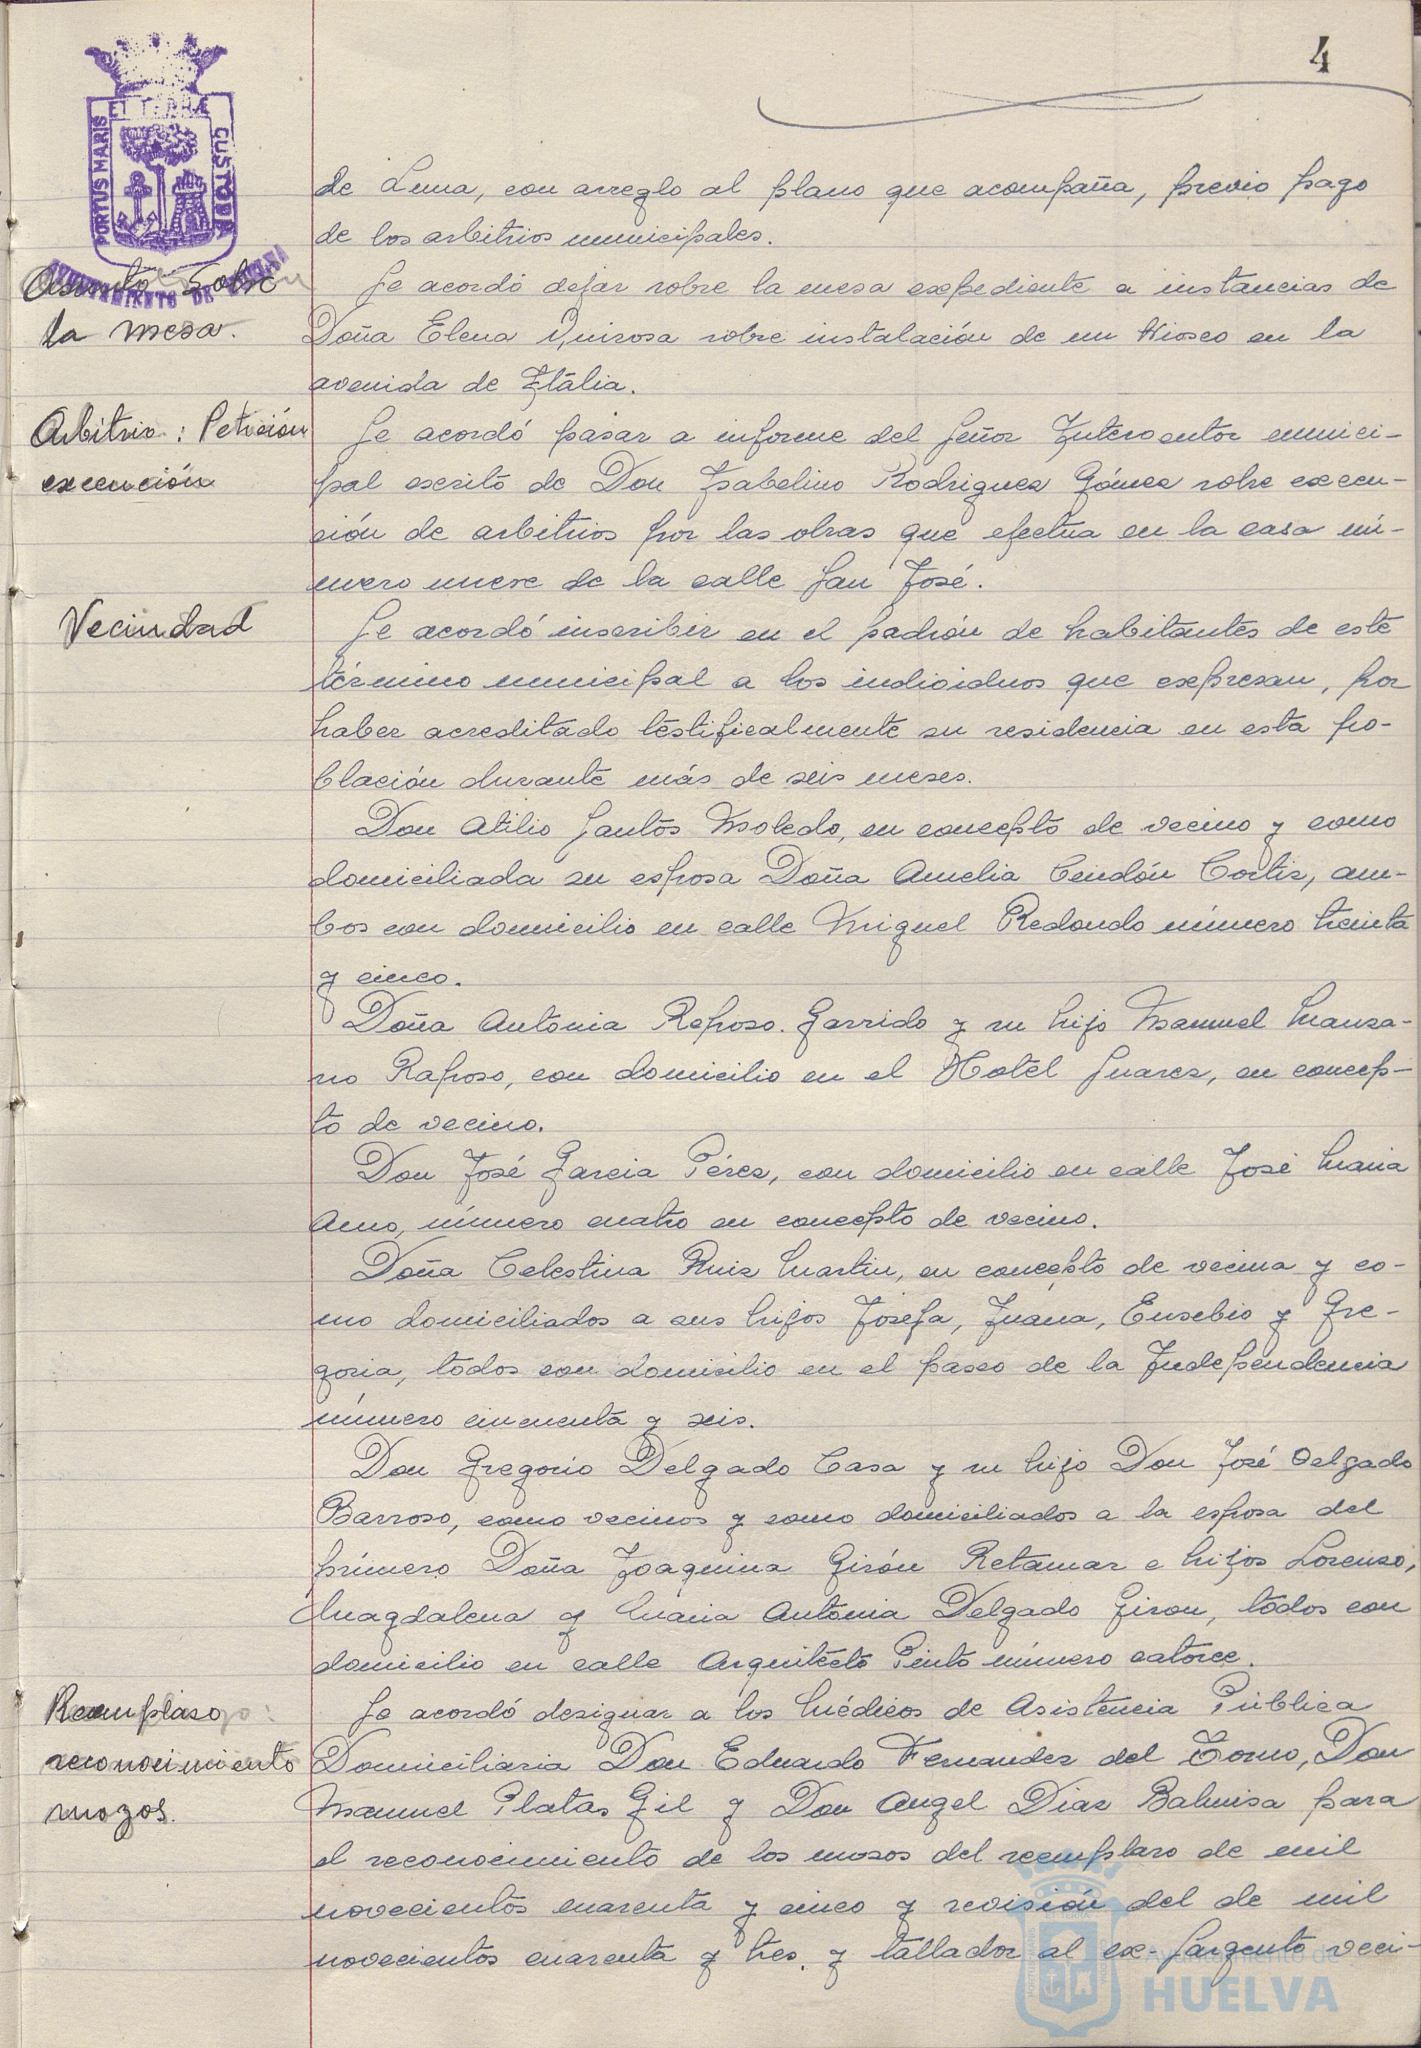 4
PORTUS MARIS ET TERRÆ CUSTODIA
AYUNTAMIENTO DE HUELVA
de Luna, con arreglo al plano que acompaña, previo pago
de los arbitrios municipales.
Asunto sobre
la mesa.
Se acordó dejar sobre la mesa expediente a instancias de
Doña Elena Quirosa sobre instalación de un Kiosco en la
avenida de Itália.
Arbitrio: Petición
excención
Se acordó pasar a informe del Señor Interventor munici-
pal escrito de Don Isabelino Rodriguez Gómez sobre excen-
ción de arbitrios por las obras que efectua en la casa nú-
mero nueve de la calle San José.
Vecindad
Se acordó inscribir en el padrón de habitantes de este
término municipal a los individuos que expresan, por
haber acreditado testificalmente su residencia en esta po-
blación durante más de seis meses.
Don Atilio Santos Moledo, en concepto de vecino y como
domiciliada su esposa Doña Amelia Cendón Cortiz, am-
bos con domicilio en calle Miguel Redondo número treinta
y cinco.
Doña Antonia Reposo Garrido y su hijo Manuel Manza-
no Raposo, con domicilio en el Hotel Suarez, en concep-
to de vecino.
Don José Garcia Pérez, con domicilio en calle José Maria
Amo, número cuatro en concepto de vecino.
Doña Celestina Ruiz Martin, en concepto de vecina y co-
mo domiciliados a sus hijos Josefa, Juana, Eusebio y Gre-
goria, todos con domicilio en el paseo de la Independencia
número cincuenta y seis.
Don Gregorio Delgado Casa y su hijo Don José Delgado
Barroso, como vecinos y como domiciliados a la esposa del
primero Doña Joaquina Girón Retamar e hijos Lorenzo,
Magdalena y Maria Antonia Delgado Giron, todos con
domicilio en calle Arquitecto Pinto número catorce.
Reemplazo:
reconocimiento
mozos.
Se acordó designar a los Médicos de Asistencia Pública
Domiciliaria Don Eduardo Fernandez del Torno, Don
Manuel Platas Gil y Don Angel Diaz Balmisa para
el reconocimiento de los mozos del reemplazo de mil
novecientos cuarenta y cinco y revisión del de mil
novecientos cuarenta y tres, y tallador al ex-Sargento veci-
Ayuntamiento de
HUELVA